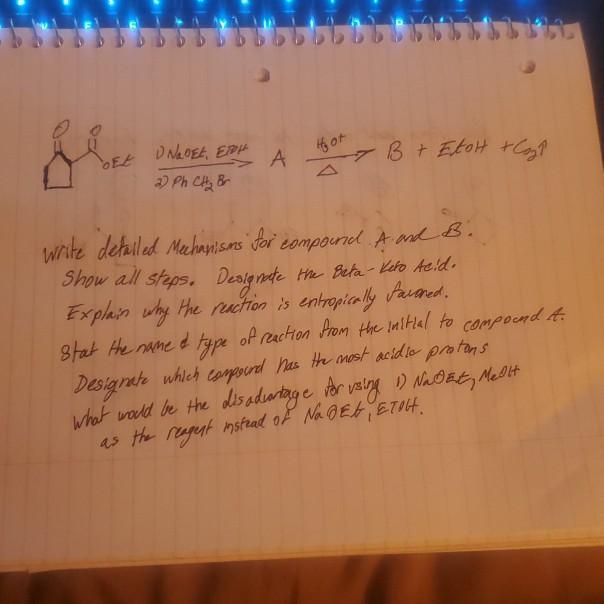 O O
OEt 1) NaOEt, EtOH A H3O+ B + EtOH + CO2↑
2) Ph CH2 Br Δ
Write detailed Mechanisms for compound A and B.
Show all steps. Designate the Beta-Keto Acid.
Explain why the reaction is entropically favored.
Stat the name & type of reaction from the initial to compound A.
Designate which compound has the most acidic protons
What would be the disadvantage for using 1) NaOEt, MeOH
as the reagent instead of NaOEt, ETOH.